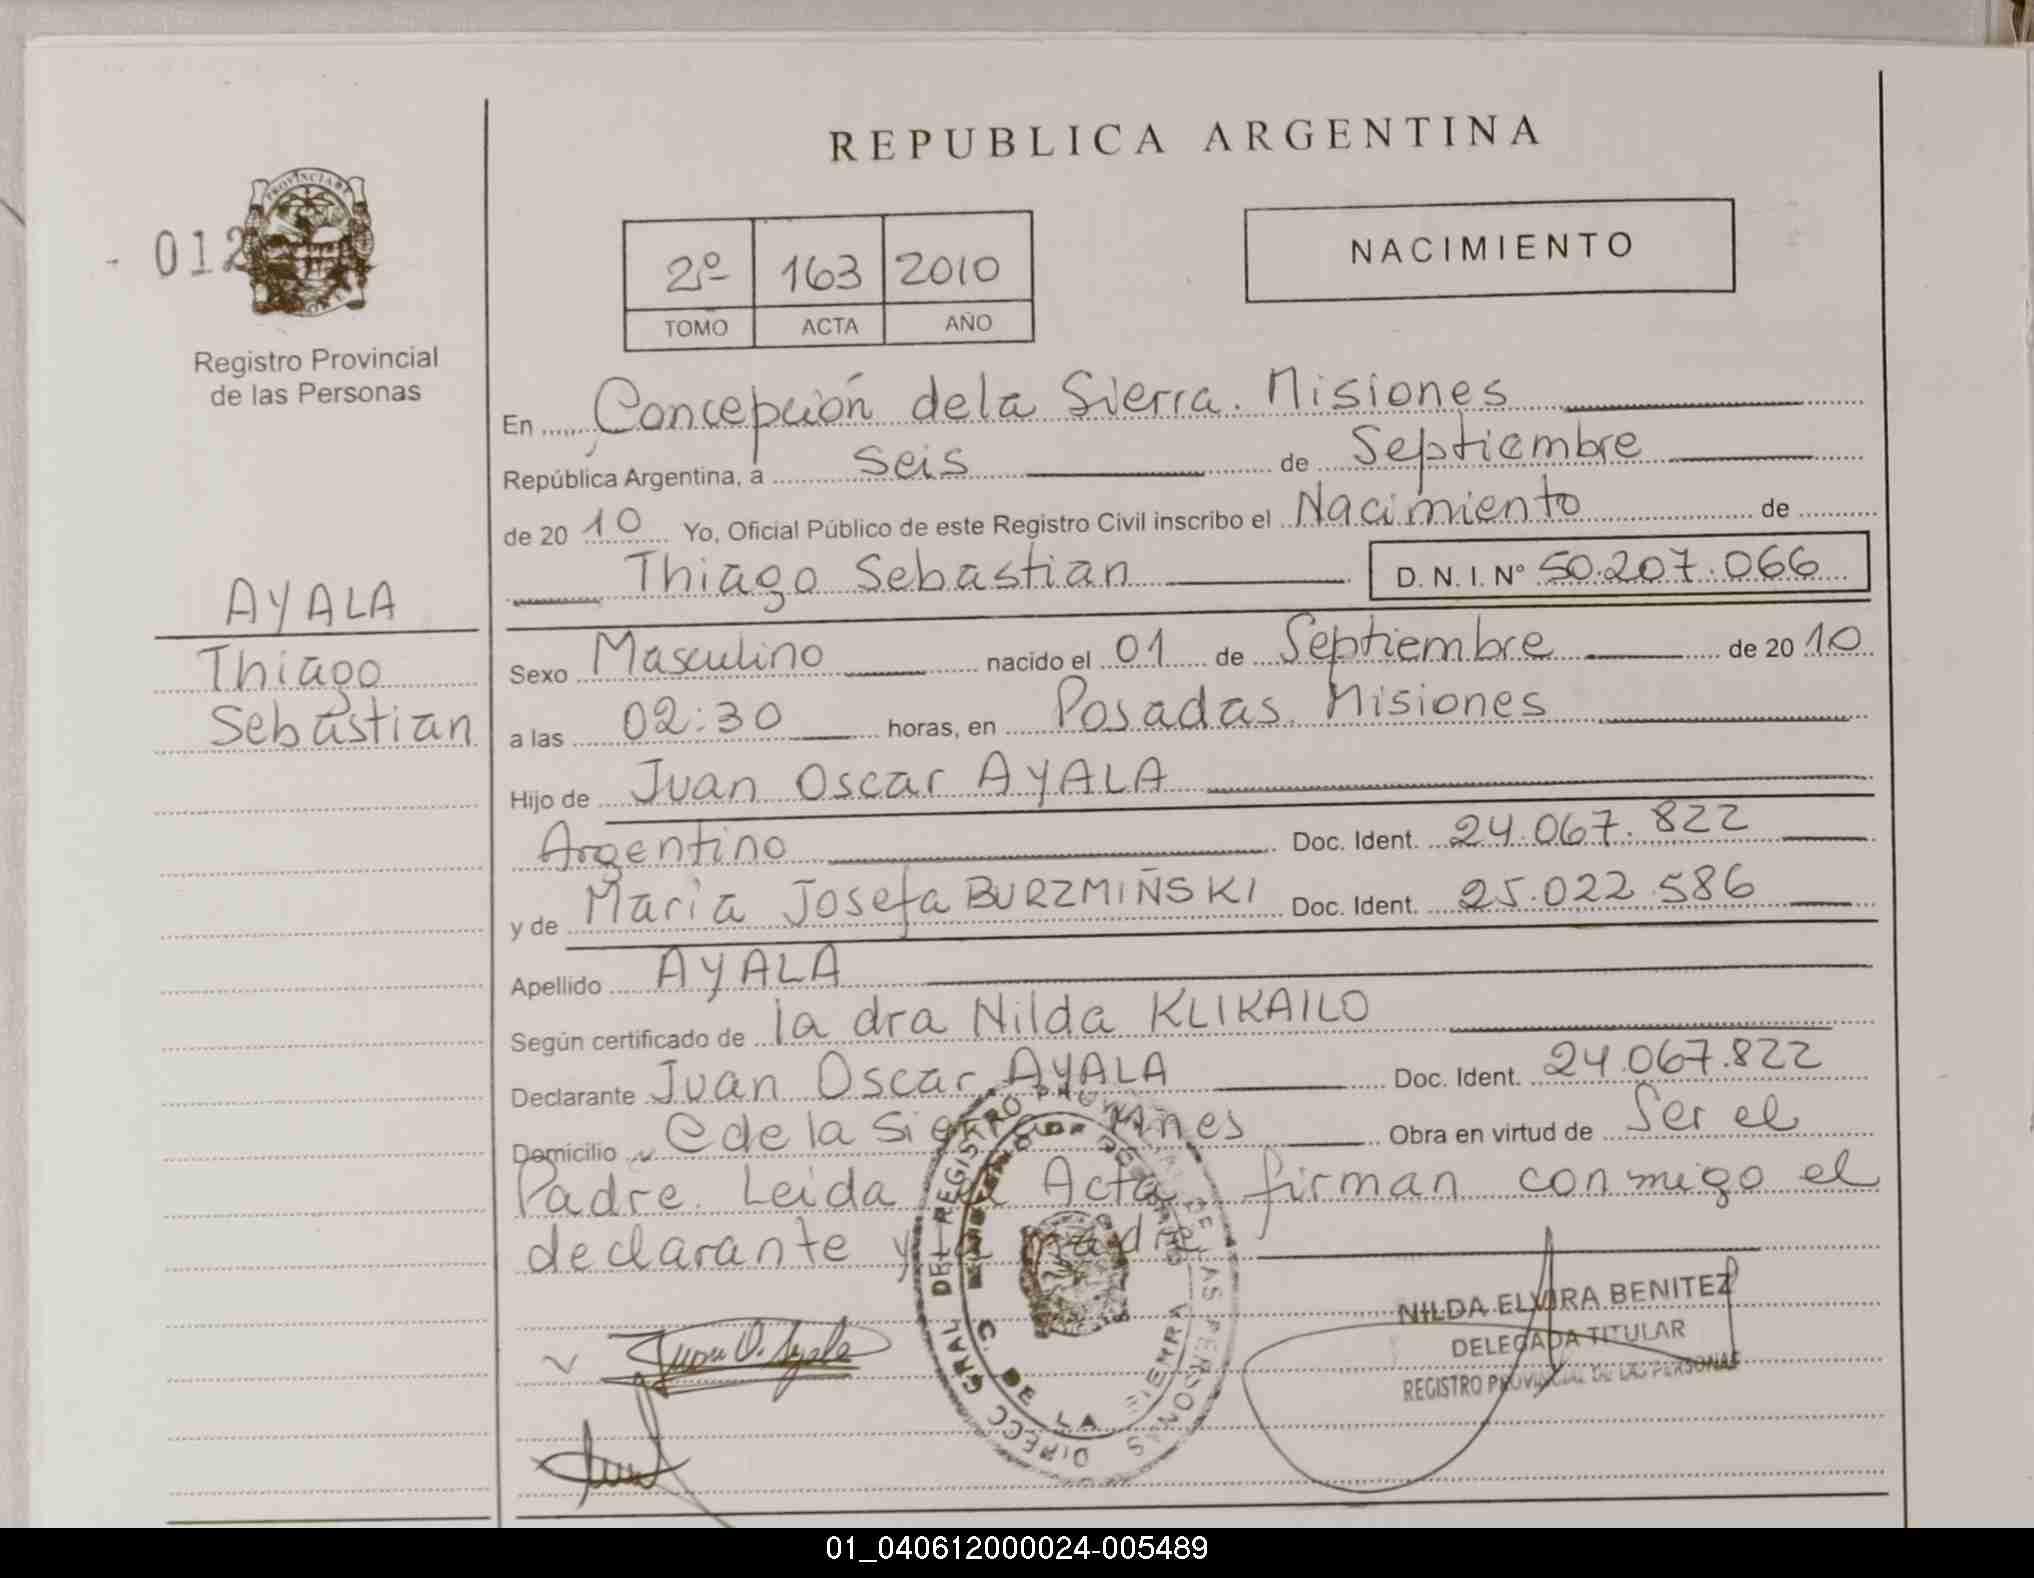 REPUBLICA ARGENTINA
- 012
Registro Provincial
de las Personas
2º 163 2010
TOMO ACTA AÑO
NACIMIENTO
En Concepción de la Sierra. Misiones
República Argentina, a Seis de Septiembre
de 2010 Yo, Oficial Público de este Registro Civil inscribo el Nacimiento de
Thiago Sebastian D. N. I. Nº 50.207.066
AYALA
Thiago
Sebastian
Sexo Masculino nacido el 01 de Septiembre de 2010
a las 02:30 horas, en Posadas. Misiones
Hijo de Juan Oscar AYALA
Argentino Doc. Ident. 24.067.822
y de Maria Josefa BURZMIÑSKI Doc. Ident. 25.022.586
Apellido AYALA
Según certificado de la dra Nilda KLIKAILO
Declarante Juan Oscar AYALA Doc. Ident. 24.067.822
Domicilio C de la Sierra Obra en virtud de Ser el
Padre. Leida el Acta, firman conmigo el
declarante y la madre
Juan O. Ayala
DIRECC GRAL DEL REGISTRO DE LAS PERSONAS
C DE LA SIERRA
NILDA ELVIRA BENITEZ
DELEGADA TITULAR
REGISTRO PROVINCIAL DE LAS PERSONAS
01_040612000024-005489